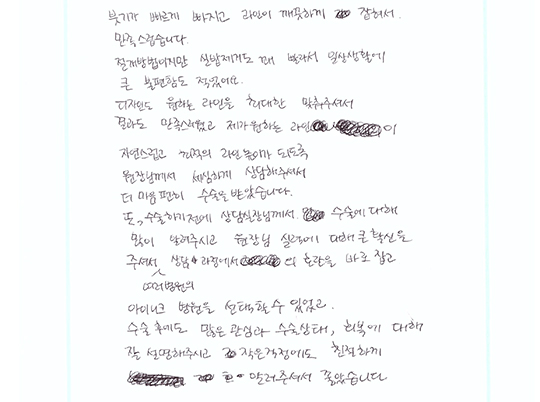 붓기가 빠르게 빠지고 라인이 깨끗하게 잡혀서
만족스럽습니다.
절개방법이지만 실밥제거도 꽤 빨라서 일상생활에
큰 불편함도 적었어요.
디자인도 원하는 라인을 최대한 맞춰주셔서
결과도 만족스러웠고 제가 원하는 라인이
자연스럽고 최적의 라인 높이가 되도록
원장님께서 세심하게 상담해주셔서
더 마음 편히 수술을 받았습니다.
또, 수술하기전에 상담실장님께서 수술에 대해
많이 알려주시고 원장님 실력에 대해 큰 확신을
주셔서 상담 과정에서의 혼란을 바로 잡고
여러병원의
아이니크 병원을 선택할 수 있었고.
수술 후에도 많은 관심과 수술상태, 회복에 대해
잘 설명해주시고 작은걱정에도 친절하게
알려주셔서 좋았습니다